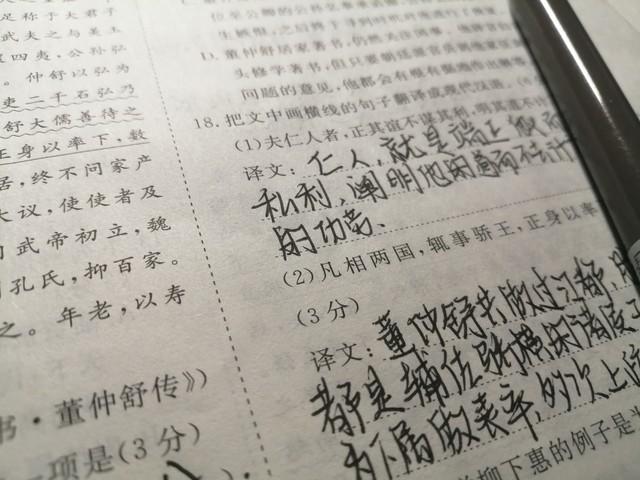 足称于大君子
武夫之与美玉
四夷，公孙弘
。仲舒以弘为
二千石弘乃
舒大儒善待之
正身以率下，数
居，终不问家产
大议，使使者及
武帝初立，魏
孔氏，抑百家。
之。年老，以寿
书·董仲舒传》）
一项是（3分）
D. 董仲舒居家著书，仍然关注
头修学著书，但只要朝廷
问题的意见，他都会有
18. 把文中画横线的句子翻译成现代汉语。
(1)夫仁人者，正其谊不谋其利，明其道不计
译文：仁人，就是端正
私利，阐明他的 而不计
的功劳、
(2)凡相两国，辄事骄王，正身以率
(3分)
译文：董仲舒共做过江都，
都是辅佐 的诸侯
为下属做表率，
柳下惠的例子是